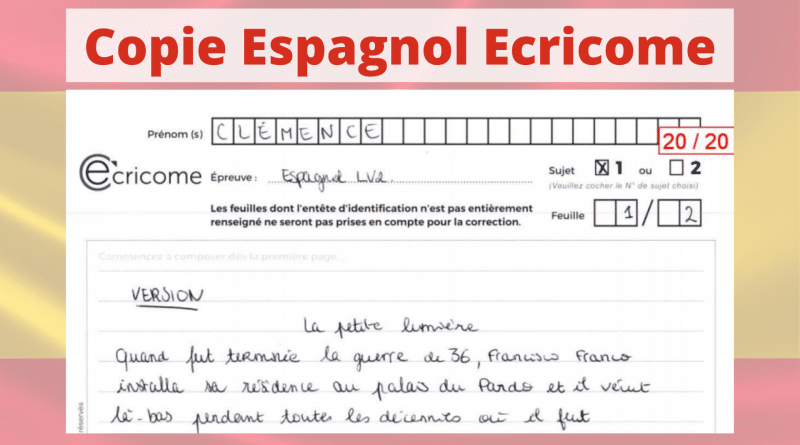 Copie Espagnol Ecricome
Prénom (s) CLÉMENCE
20 / 20
écricome
Épreuve : Espagnol LV2
Sujet X 1 ou 2
(Veuillez cocher le N° de sujet choisi)
Les feuilles dont l'entête d'identification n'est pas entièrement
renseigné ne seront pas prises en compte pour la correction.
Feuille 1 / 2
Commencez à composer dès la première page...
VERSION
La petite lumière
Quand fut terminée la guerre de 36, Francisco Franco
installa sa résidence au palais du Pardo et il vécut
là-bas pendant toutes les décennies où il fut
réservés